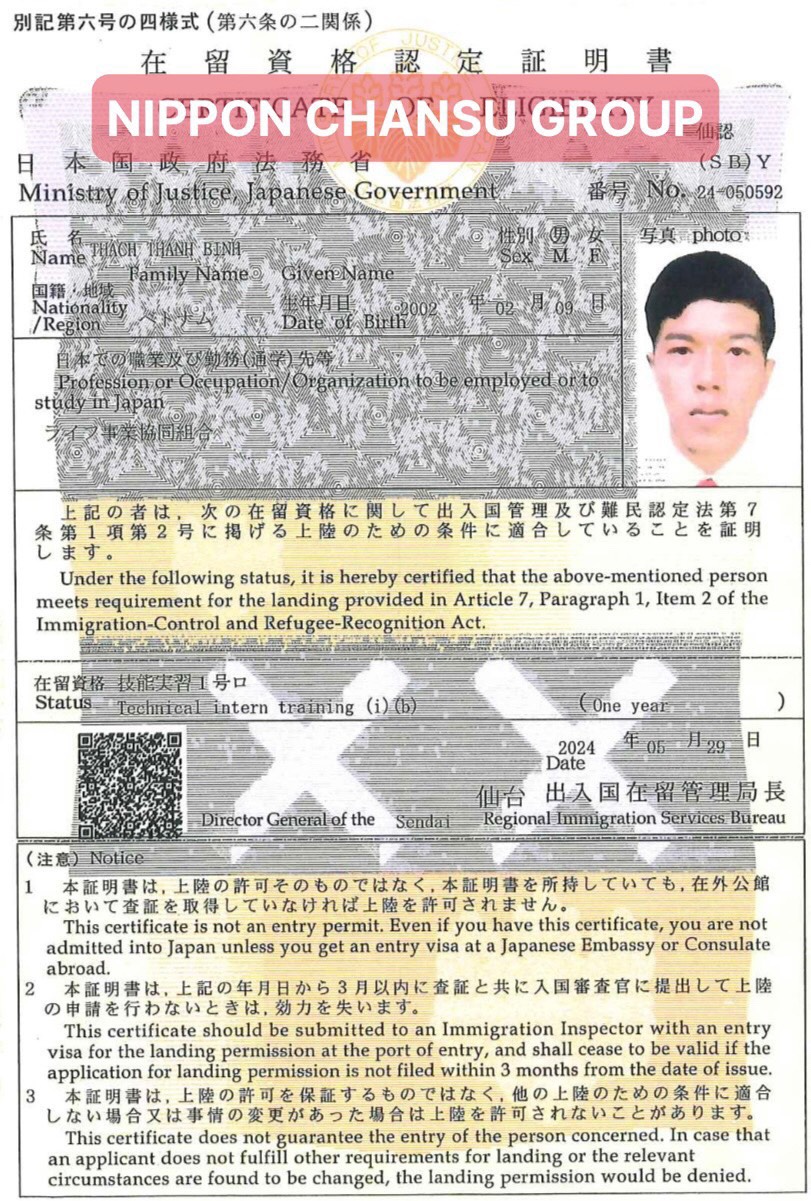 別記第六号の四様式 (第六条の二関係)
在留資格認定証明書
CERTIFICATE OF ELIGIBILITY
NIPPON CHANSU GROUP
仙認
日本国政府法務省
(SB)Y
Ministry of Justice, Japanese Government
番号 No. 24-050592
氏名
Name THACH THANH BINH
Family Name Given Name
性別 男 女
Sex M F
写真 photo
国籍・地域
Nationality
/Region ベトナム
生年月日
Date of Birth 2002 年 02 月 09 日
日本での職業及び勤務(通学)先等
Profession or Occupation/Organization to be employed or to
study in Japan
ライフ事業協同組合
上記の者は, 次の在留資格に関して出入国管理及び難民認定法第7
条第1項第2号に掲げる上陸のための条件に適合していることを証明
します。
Under the following status, it is hereby certified that the above-mentioned person
meets requirement for the landing provided in Article 7, Paragraph 1, Item 2 of the
Immigration-Control and Refugee-Recognition Act.
在留資格 技能実習1号ロ
Status Technical intern training (i)(b) (One year )
2024 年 05 月 29 日
Date
仙台 出入国在留管理局長
Director General of the Sendai Regional Immigration Services Bureau
(注意) Notice
1 本証明書は, 上陸の許可そのものではなく, 本証明書を所持していても, 在外公館
において査証を取得していなければ上陸を許可されません。
This certificate is not an entry permit. Even if you have this certificate, you are not
admitted into Japan unless you get an entry visa at a Japanese Embassy or Consulate
abroad.
2 本証明書は, 上記の年月日から3月以内に査証と共に入国審査官に提出して上陸
の申請を行わないときは, 効力を失います。
This certificate should be submitted to an Immigration Inspector with an entry
visa for the landing permission at the port of entry, and shall cease to be valid if the
application for landing permission is not filed within 3 months from the date of issue.
3 本証明書は, 上陸の許可を保証するものではなく, 他の上陸のための条件に適合
しない場合又は事情の変更があった場合は上陸を許可されないことがあります。
This certificate does not guarantee the entry of the person concerned. In case that
an applicant does not fulfill other requirements for landing or the relevant
circumstances are found to be changed, the landing permission would be denied.